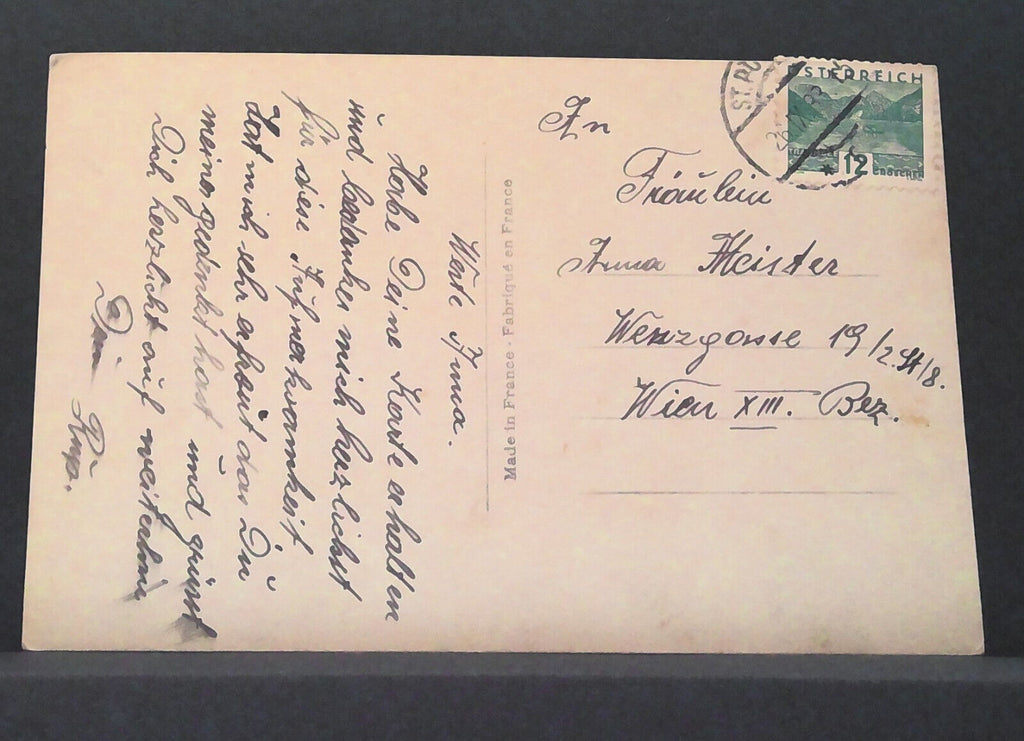 Werte Anna.
Habe Deine Karte erhalten
und bedanke mich herzlichst
für dein Aufmerksamkeit
Hat mich sehr erfreut das Du
meiner gedenkt hast und grüsst
Dich herzlichst auf weiterhin
Dein
Made in France - Fabriqué en France
ÖSTERREICH
12
GROSCHEN
ST. PÖ
An
Fräulein
Anna Meister
Wenzgasse 19/2.St/8.
Wien XIII. Bez.